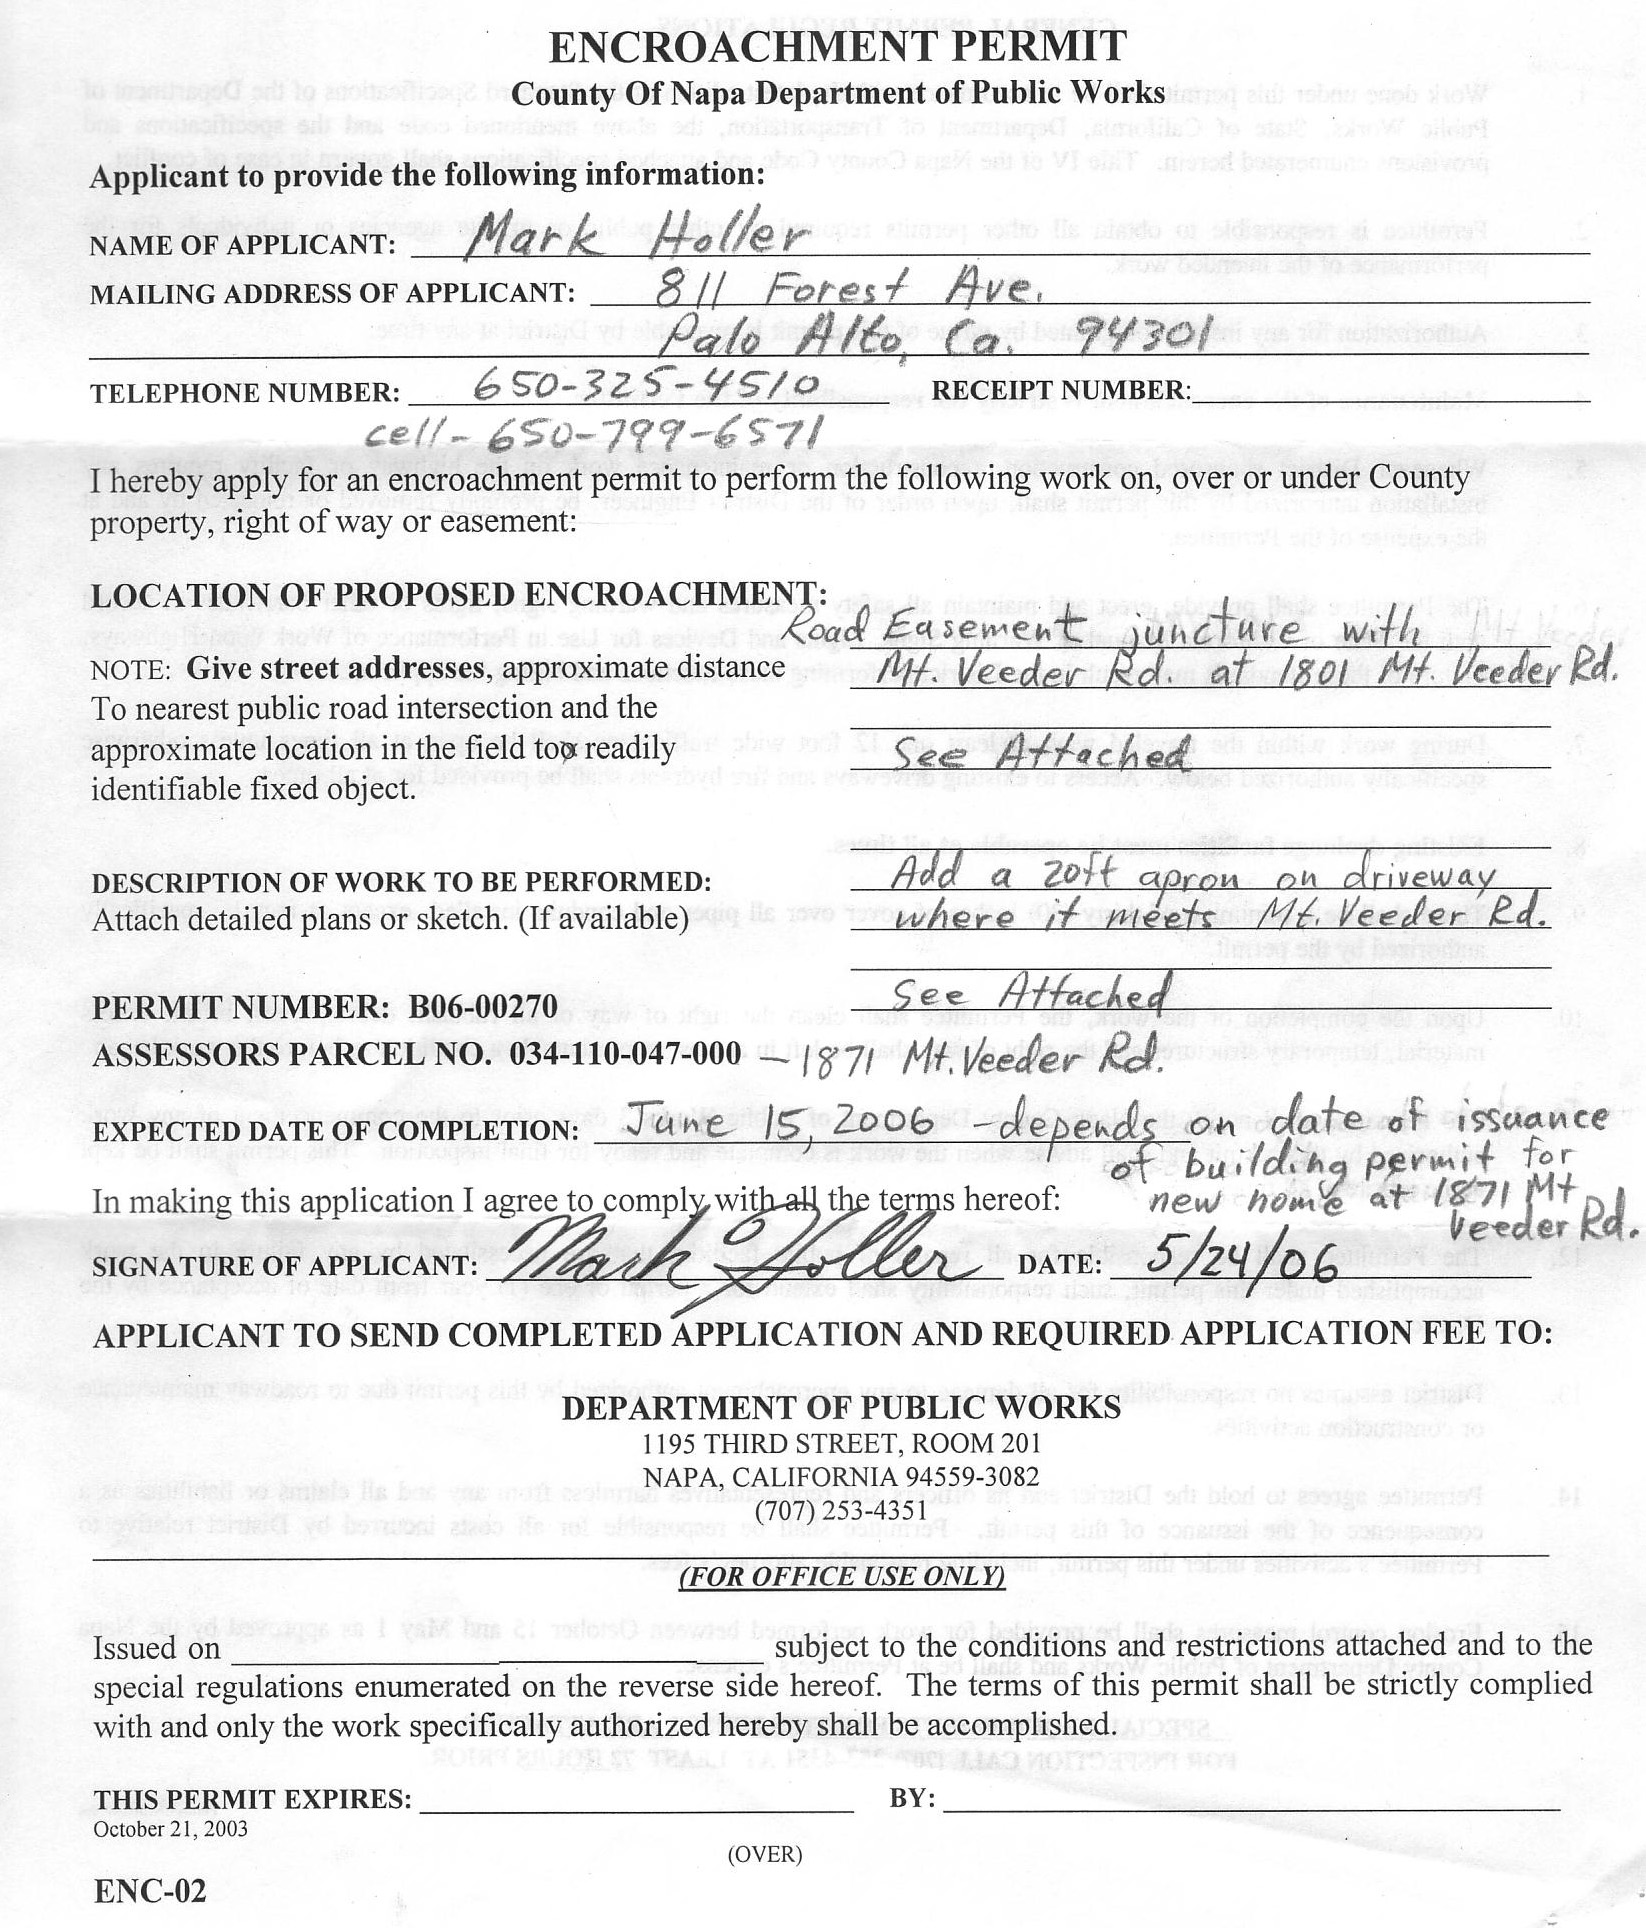 ENCROACHMENT PERMIT
County Of Napa Department of Public Works
Applicant to provide the following information:
NAME OF APPLICANT: Mark Holler
MAILING ADDRESS OF APPLICANT: 811 Forest Ave.
Palo Alto, Ca. 94301
TELEPHONE NUMBER: 650-325-4510 RECEIPT NUMBER:
cell - 650-799-6571
I hereby apply for an encroachment permit to perform the following work on, over or under County
property, right of way or easement:
LOCATION OF PROPOSED ENCROACHMENT:
Road Easement juncture with Mt Veeder
NOTE: Give street addresses, approximate distance Mt. Veeder Rd. at 1801 Mt. Veeder Rd.
To nearest public road intersection and the
approximate location in the field too readily See Attached
identifiable fixed object.
DESCRIPTION OF WORK TO BE PERFORMED: Add a 20ft apron on driveway
Attach detailed plans or sketch. (If available) where it meets Mt. Veeder Rd.
PERMIT NUMBER: B06-00270 See Attached
ASSESSORS PARCEL NO. 034-110-047-000 - 1871 Mt. Veeder Rd.
EXPECTED DATE OF COMPLETION: June 15, 2006 - depends on date of issuance
of building permit for
In making this application I agree to comply with all the terms hereof: new home at 1871 Mt
Veeder Rd.
SIGNATURE OF APPLICANT: Mark Holler DATE: 5/24/06
APPLICANT TO SEND COMPLETED APPLICATION AND REQUIRED APPLICATION FEE TO:
DEPARTMENT OF PUBLIC WORKS
1195 THIRD STREET, ROOM 201
NAPA, CALIFORNIA 94559-3082
(707) 253-4351
(FOR OFFICE USE ONLY)
Issued on subject to the conditions and restrictions attached and to the
special regulations enumerated on the reverse side hereof. The terms of this permit shall be strictly complied
with and only the work specifically authorized hereby shall be accomplished.
THIS PERMIT EXPIRES: BY:
October 21, 2003
(OVER)
ENC-02